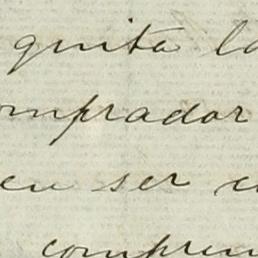 quita la
omprador
en ser
compren